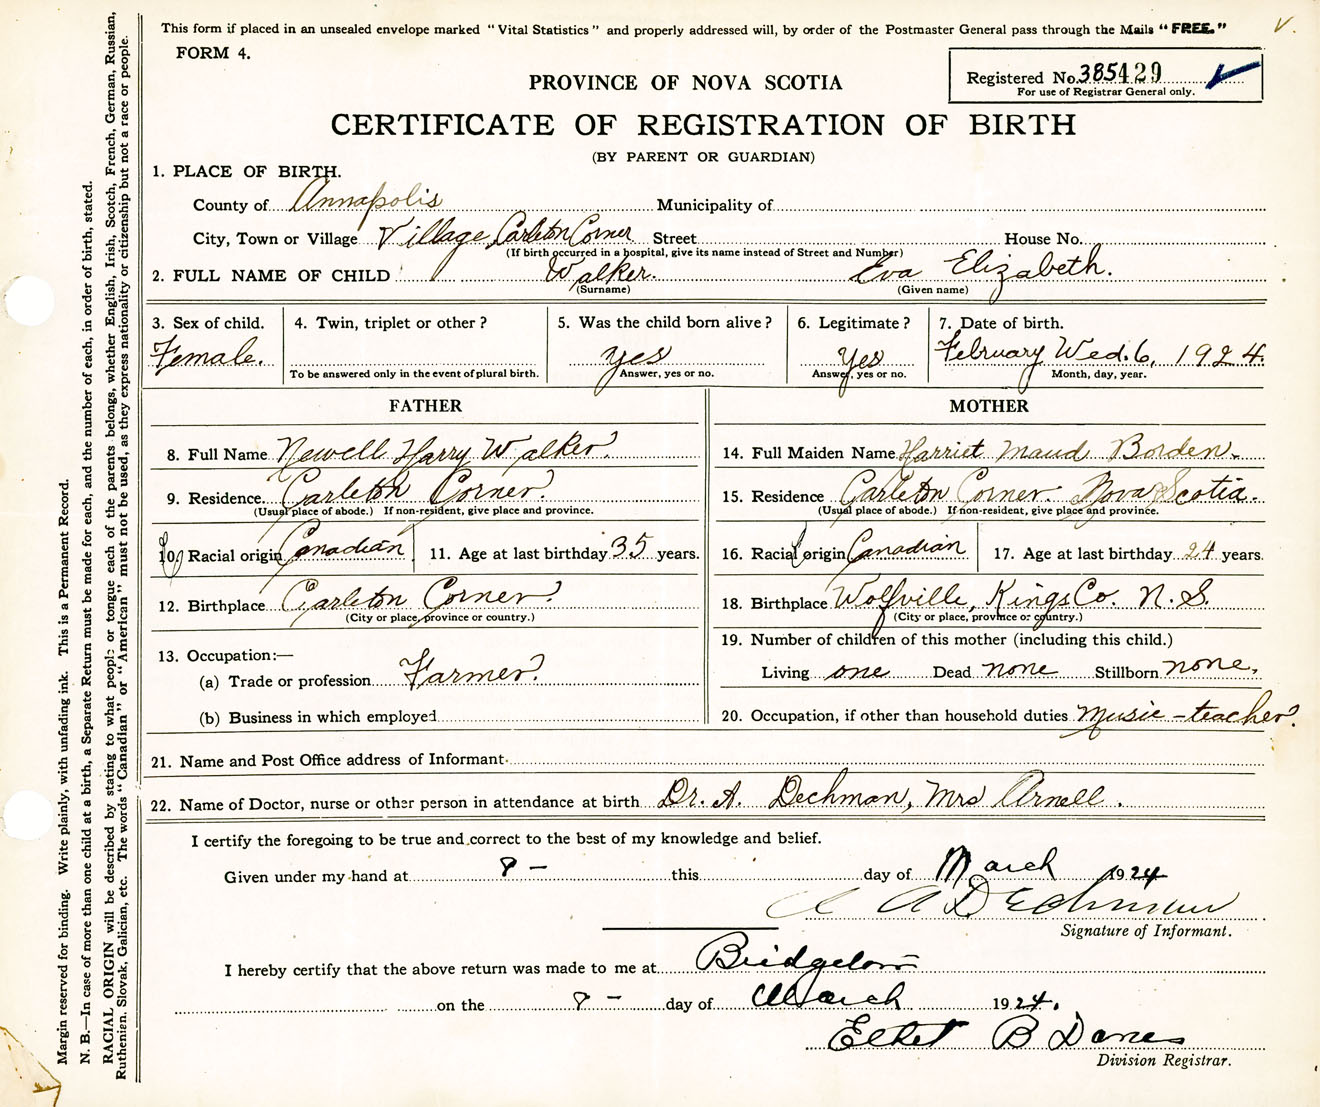 This form if placed in an unsealed envelope marked "Vital Statistics" and properly addressed will, by order of the Postmaster General pass through the Mails "FREE."
FORM 4.
PROVINCE OF NOVA SCOTIA
Registered No. 385429
For use of Registrar General only.
CERTIFICATE OF REGISTRATION OF BIRTH
(BY PARENT OR GUARDIAN)
1. PLACE OF BIRTH.
County of Annapolis Municipality of
City, Town or Village Village Carleton Corner Street House No.
(If birth occurred in a hospital, give its name instead of Street and Number)
2. FULL NAME OF CHILD Walker. Eva Elizabeth.
(Surname) (Given name)
3. Sex of child. 4. Twin, triplet or other? 5. Was the child born alive? 6. Legitimate? 7. Date of birth.
Female. yes Yes February Wed. 6, 1924.
To be answered only in the event of plural birth. Answer, yes or no. Answer, yes or no. Month, day, year.
FATHER
8. Full Name Newell Harry Walker.
9. Residence. Carleton Corner.
(Usual place of abode.) If non-resident, give place and province.
10. Racial origin Canadian 11. Age at last birthday 35 years.
12. Birthplace Carleton Corner.
(City or place, province or country.)
13. Occupation:—
(a) Trade or profession Farmer.
(b) Business in which employed
MOTHER
14. Full Maiden Name Harriet Maud Borden.
15. Residence Carleton Corner. Nova Scotia.
(Usual place of abode.) If non-resident, give place and province.
16. Racial origin Canadian 17. Age at last birthday 24 years.
18. Birthplace Wolfville, Kings Co. N. S.
(City or place, province or country.)
19. Number of children of this mother (including this child.)
Living one Dead none Stillborn none.
20. Occupation, if other than household duties Music-teacher.
21. Name and Post Office address of Informant
22. Name of Doctor, nurse or other person in attendance at birth Dr. A. Dechman, Mrs Arnell.
I certify the foregoing to be true and correct to the best of my knowledge and belief.
Given under my hand at 8 - this day of March 1924
A A Dechman
Signature of Informant.
I hereby certify that the above return was made to me at Bridgetown
on the 8 - day of March 1924.
Ethel B
Division Registrar.
Margin reserved for binding. Write plainly, with unfading ink. This is a Permanent Record.
N. B.—In case of more than one child at a birth, a Separate Return must be made for each, and the number of each, in order of birth, stated.
RACIAL ORIGIN will be described by stating to what people or tongue each of the parents belongs, whether English, Irish, Scotch, French, German, Russian,
Ruthenian, Slovak, Galician, etc. The words "Canadian" or "American" must not be used, as they express nationality or citizenship but not a race or people.